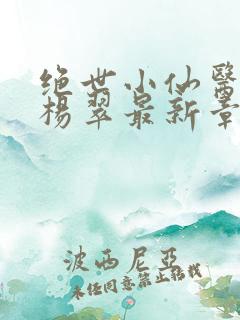 绝世小仙医
杨翠最新章
波西尼亚
未经同意禁止转载